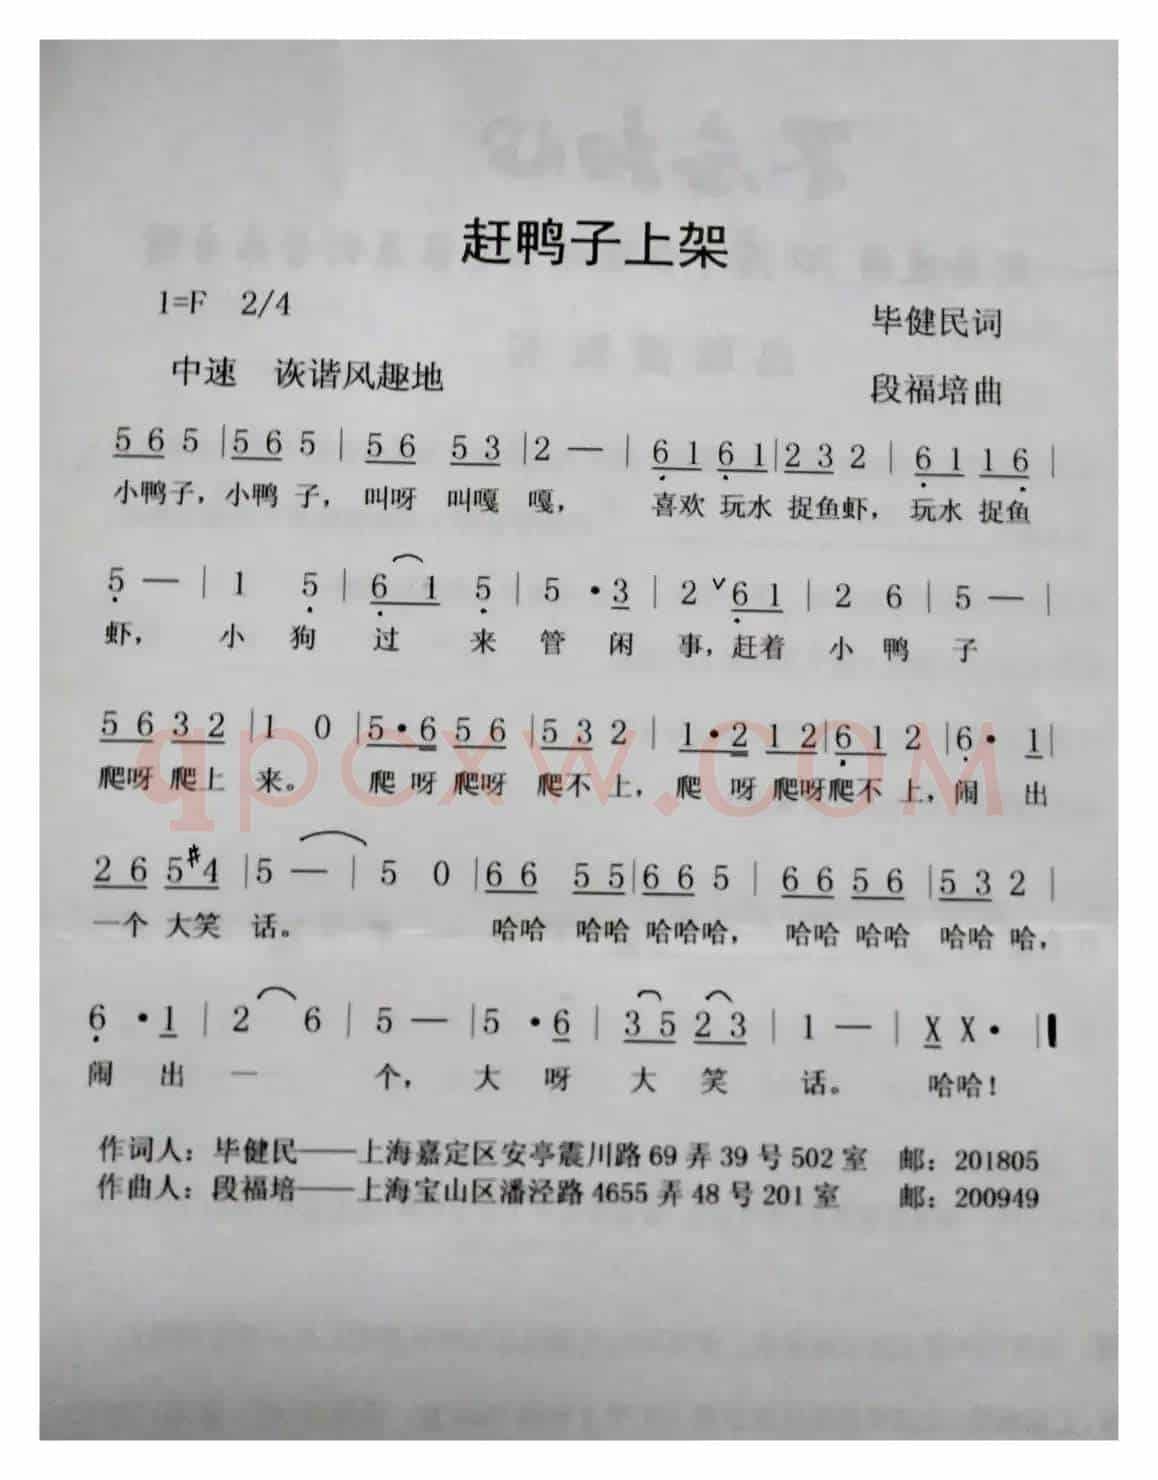 赶鸭子上架
1=F 2/4
毕健民词
中速 诙谐风趣地
段福培曲
5 6 5 | 5 6 5 | 5 6 5 3 | 2 — | 6 1 6 1 | 2 3 2 | 6 1 1 6 |
小鸭子，小鸭 子， 叫呀 叫嘎 嘎， 喜欢 玩水 捉鱼虾， 玩水 捉鱼
5 — | 1 5 | 6 1 5 | 5 · 3 | 2 ˅ 6 1 | 2 6 | 5 — |
虾， 小 狗 过 来 管 闲 事，赶着 小 鸭 子
5 6 3 2 | 1 0 | 5 · 6 5 6 | 5 3 2 | 1 · 2 1 2 | 6 1 2 | 6 · 1 |
爬呀 爬上 来。 爬 呀 爬呀 爬不 上， 爬 呀 爬呀爬不 上，闹 出
2 6 5 #4 | 5 — | 5 0 | 6 6 5 5 | 6 6 5 | 6 6 5 6 | 5 3 2 |
一个 大笑 话。 哈哈 哈哈 哈哈哈， 哈哈 哈哈 哈哈 哈，
6 · 1 | 2 6 | 5 — | 5 · 6 | 3 5 2 3 | 1 — | X X · ‖
闹 出 一 个， 大 呀 大 笑 话。 哈哈！
作词人：毕健民——上海嘉定区安亭震川路 69 弄 39 号 502 室 邮：201805
作曲人：段福培——上海宝山区潘泾路 4655 弄 48 号 201 室 邮：200949
qpcxw.com